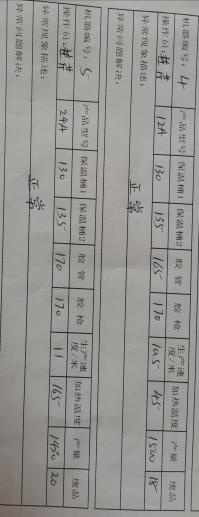 机器编号：4 产品型号 保温桶1 保温桶2 胶管 胶枪 生产速度/米 加热温度 产量 废品
操作员： 12A 130 135 165 170 10.5 45 1500 18
异常现象描述： 正常
异常问题解决：
机器编号：5 产品型号 保温桶1 保温桶2 胶管 胶枪 生产速度/米 加热温度 产量 废品
操作员： 24A 130 135 170 170 11 165 1430 20
异常现象描述： 正常
异常问题解决：